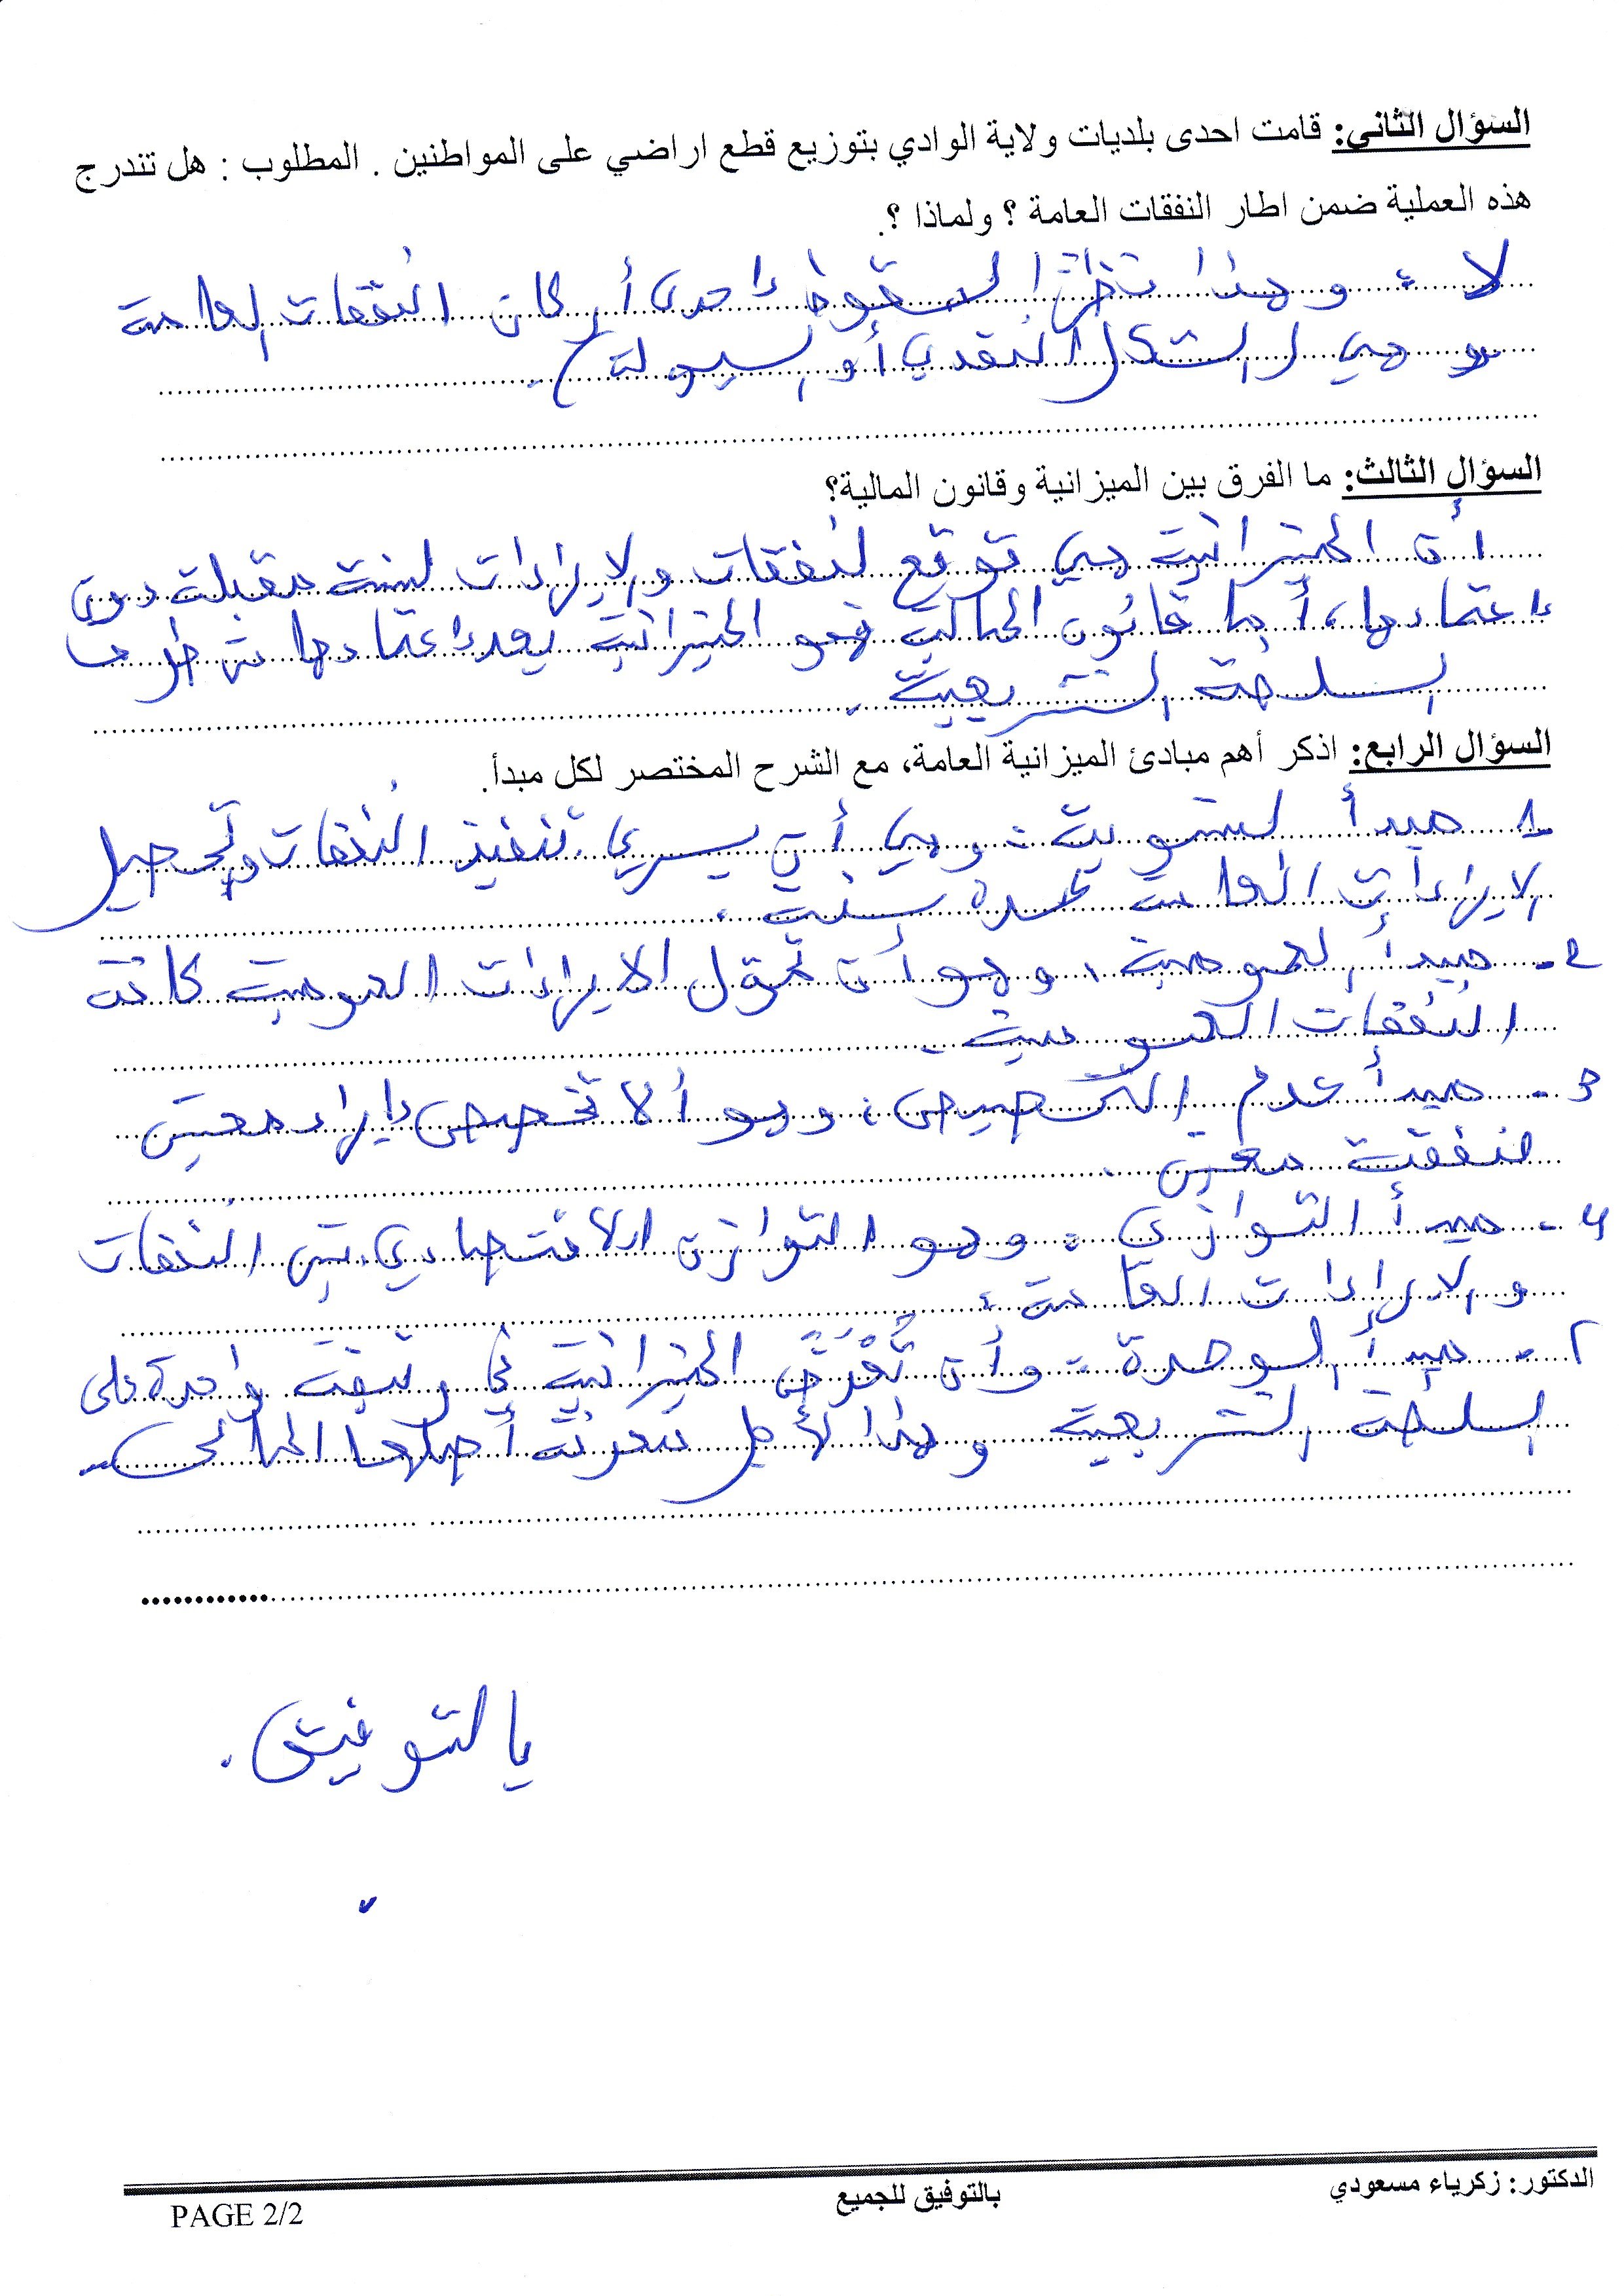 السؤال الثاني: قامت احدى بلديات ولاية الوادي بتوزيع قطع اراضي على المواطنين . المطلوب : هل تندرج
هذه العملية ضمن اطار النفقات العامة ؟ ولماذا ؟.
لا ، وهذا نظرًا لسقوط إحدى أركان النفقات العامة
وهي (الشكل النقدي أو السيولة).
السؤال الثالث: ما الفرق بين الميزانية وقانون المالية؟
أن الميزانية هي توقع لنفقات والإيرادات لسنة مقبلة دون
إعتمادها، أما قانون المالية فهو الميزانية بعد إعتمادها من طرف
السلطة التشريعية.
السؤال الرابع: اذكر أهم مبادئ الميزانية العامة، مع الشرح المختصر لكل مبدأ.
1- مبدأ السنوية: وهي أن يسري تنفيذ النفقات وتحصيل
الايرادات العامة لمدة سنة.
2- مبدأ العمومية، وهو أن تمول الايرادات العمومية كافة
النفقات العمومية.
3- مبدأ عدم التخصيص، وهو ألا تخصص إيراد معين
لنفقة معين.
4- مبدأ التوازن: وهو التوازن الاقتصادي بين النفقات
والايرادات العامة.
- مبدأ الوحدة: وأن تُعْرَضَ الميزانية في وثيقة واحدة على
السلطة التشريعية وهذا لأجل المالي
بالتوفيق.
الدكتور: زكرياء مسعودي
بالتوفيق للجميع
PAGE 2/2